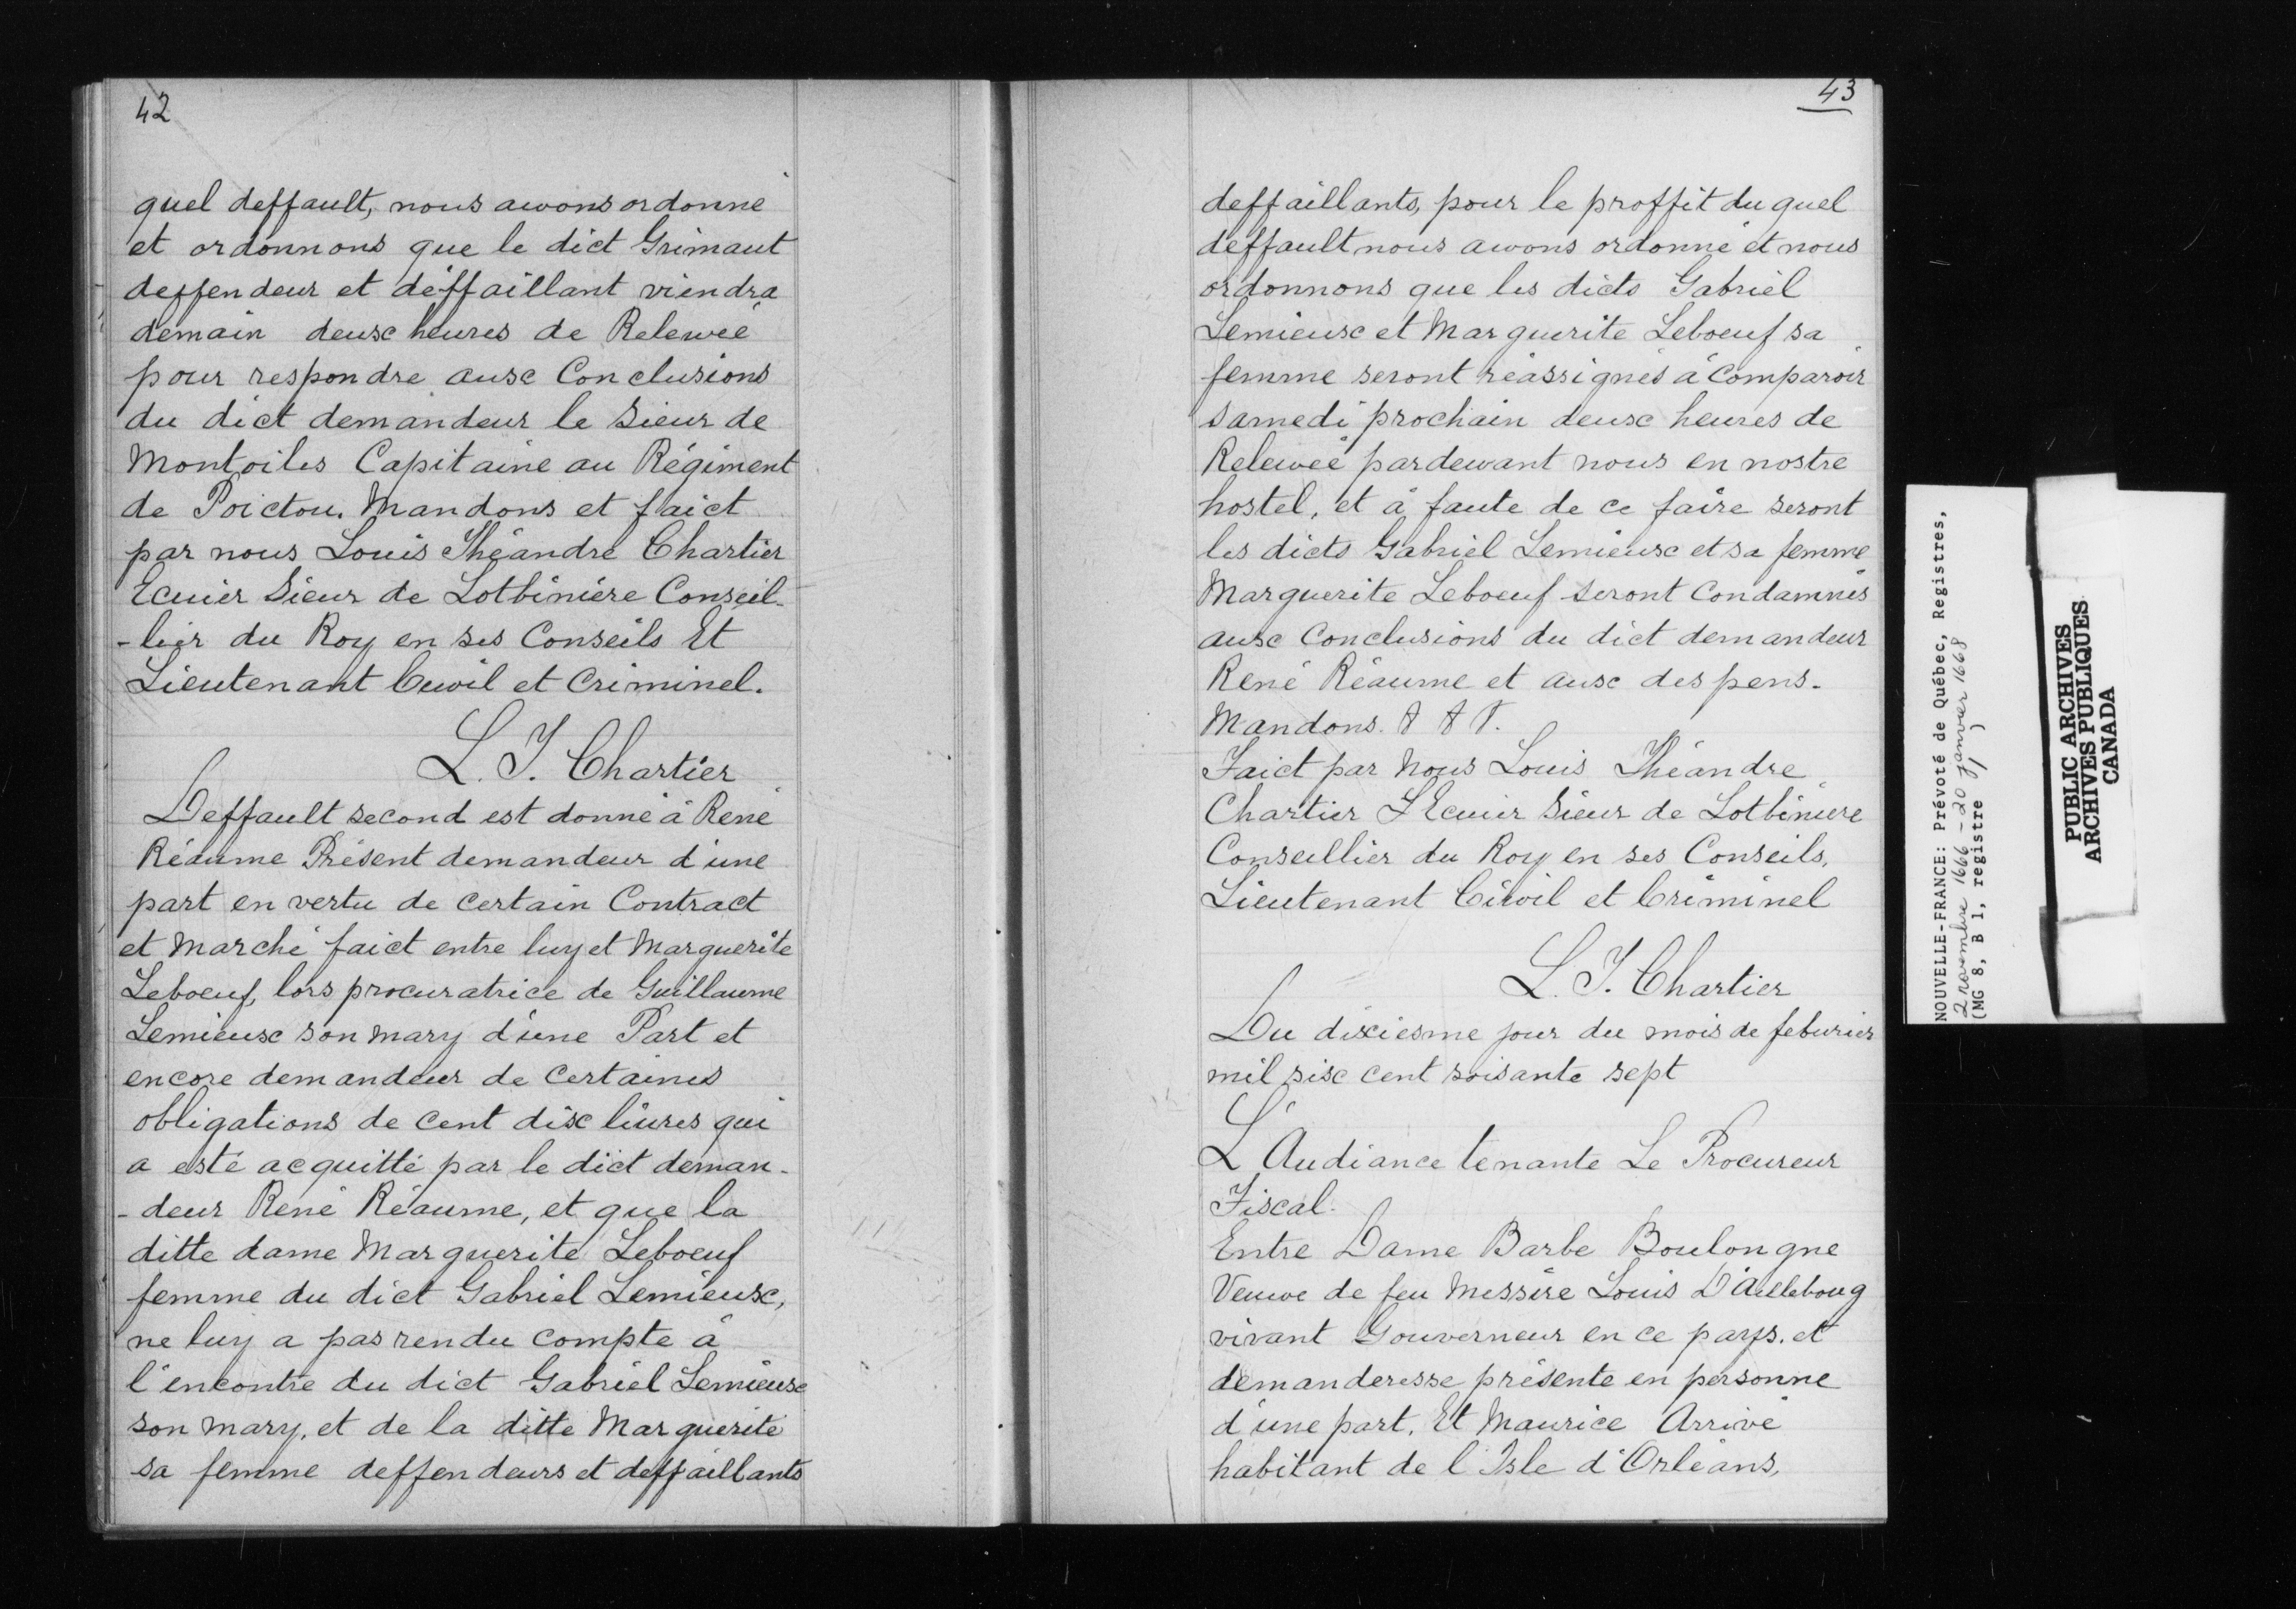 42
quel deffault, nous awons ordonné
et ordonnons que le dict Grimaut
deffendeur et déffaillant viendra
demain deux heures de Relewée
pour respondre aux Conclusions
du dict demandeur le Sieur de
Montoiles Capitaine au Régiment
de Poictou. Mandons et faict
par nous Louis Théandre Chartier
Ecuier Sieur de Lotbinière Conseil-
-lier du Roy en ses Conseils Et
Lieutenant Ciwil et Criminel.
L. T. Chartier
Deffault second est donné à René
Réaume Présent demandeur d'une
part en vertu de certain Contract
et Marché faict entre luy et Marguerite
Leboeuf, lors procuratrice de Guillaume
Lemieux son mary d'une Part et
encore demandeur de Certaines
obligations de cent dix liures qui
a esté acquitté par le dict deman-
-deur René Réaume, et que la
ditte dame Marguerite Leboeuf
femme du dict Gabriel Lemieux,
ne luy a pas rendu compte à
l'encontre du dict Gabriel Lemieux
son mary, et de la ditte Marguerite
sa femme deffendeurs et deffaillants
43
deffaillants, pour le proffit du quel
deffault nous awons ordonné et nous
ordonnons que les dicts Gabriel
Lemieux et Marguerite Leboeuf sa
femme seront réassignés à Comparoir
samedi prochain deux heures de
Relewée pardewant nous en nostre
hostel, et à faute de ce faire seront
les dicts Gabriel Lemieux et sa femme
Marguerite Leboeuf seront Condamnés
aux Conclusions du dict demandeur
René Réaume et aux despens.
Mandons.
Faict par Nous Louis Théandre
Chartier L Ecuier Sieur de Lotbiniere
Conseillier du Roy en ses Conseils,
Lieutenant Ciwil et Criminel
L. T. Chartier
Du dixiesme jour du mois de feburier
mil six cent soisante sept
L'Audiance tenante Le Procureur
Fiscal.
Entre Dame Barbe Boulongne
Veuwe de feu Messire Louis D'Ailleboug
vivant Gouverneur en ce pays. et
demanderesse présente en personne
d'une part. Et Maurice Arrivé
habitant de l'Isle d'Orléans,
NOUVELLE-FRANCE: Prévoté de Québec, Registres,
2 novembre 1666 - 20 janvier 1668
(MG 8, B 1, registre 1)
PUBLIC ARCHIVES
ARCHIVES PUBLIQUES
CANADA